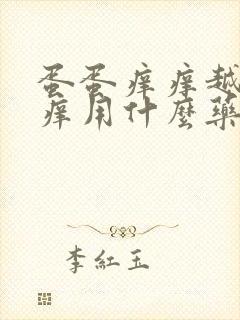 蛋蛋痒痒越
痒用什麼藥
李紅玉